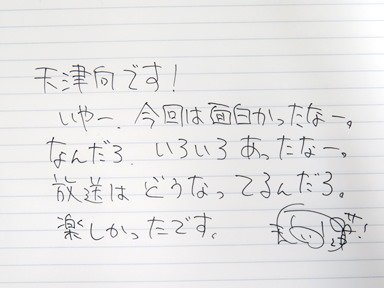 天津向です!
いやー、今回は面白かったなー。
なんだろ、いろいろあったなー。
放送はどうなってるんだろ。
楽しかったです。